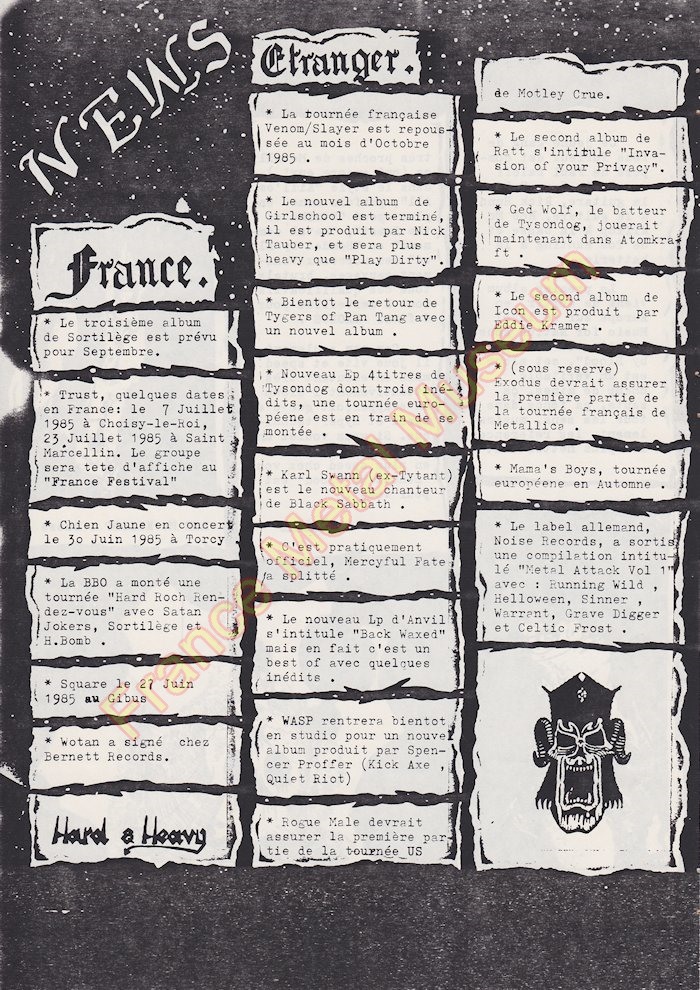 NEWS
France.
* Le troisième album
de Sortilège est prévu
pour Septembre.
* Trust, quelques dates
en France: le 7 Juillet
1985 à Choisy-le-Roi,
23 Juillet 1985 à Saint
Marcellin. Le groupe
sera tete d'affiche au
"France Festival"
* Chien Jaune en concert
le 30 Juin 1985 à Torcy
* La BBO a monté une
tournée "Hard Roch Ren-
dez-vous" avec Satan
Jokers, Sortilège et
H.Bomb .
* Square le 27 Juin
1985 au Gibus
* Wotan a signé chez
Bernett Records.
Hard & Heavy
Etranger.
* La tournée française
Venom/Slayer est repous-
sée au mois d'Octobre
1985 .
* Le nouvel album de
Girlschool est terminé,
il est produit par Nick
Tauber, et sera plus
heavy que "Play Dirty".
* Bientot le retour de
Tygers of Pan Tang avec
un nouvel album .
* Nouveau Ep 4titres de
Tysondog dont trois iné-
dits, une tournée euro-
péene est en train de se
montée .
* Karl Swann (ex-Tytant)
est le nouveau chanteur
de Black Sabbath .
* C'est pratiquement
officiel, Mercyful Fate
a splitté .
* Le nouveau Lp d'Anvil
s'intitule "Back Waxed"
mais en fait c'est un
best of avec quelques
inédits .
* WASP rentrera bientot
en studio pour un nouve
album produit par Spen-
cer Proffer (Kick Axe ,
Quiet Riot)
* Rogue Male devrait
assurer la première par
tie de la tournée US
de Motley Crue.
* Le second album de
Ratt s'intitule "Inva-
sion of your Privacy".
* Ged Wolf, le batteur
de Tysondog, jouerait
maintenant dans Atomkra-
ft .
* Le second album de
Icon est produit par
Eddie Kramer .
* (sous reserve)
Exodus devrait assurer
la première partie de
la tournée français de
Metallica .
* Mama's Boys, tournée
européene en Automne .
* Le label allemand,
Noise Records, a sortis
une compilation intitu-
lé "Metal Attack Vol 1"
avec : Running Wild ,
Helloween, Sinner ,
Warrant, Grave Digger
et Celtic Frost .
France Metal Museum